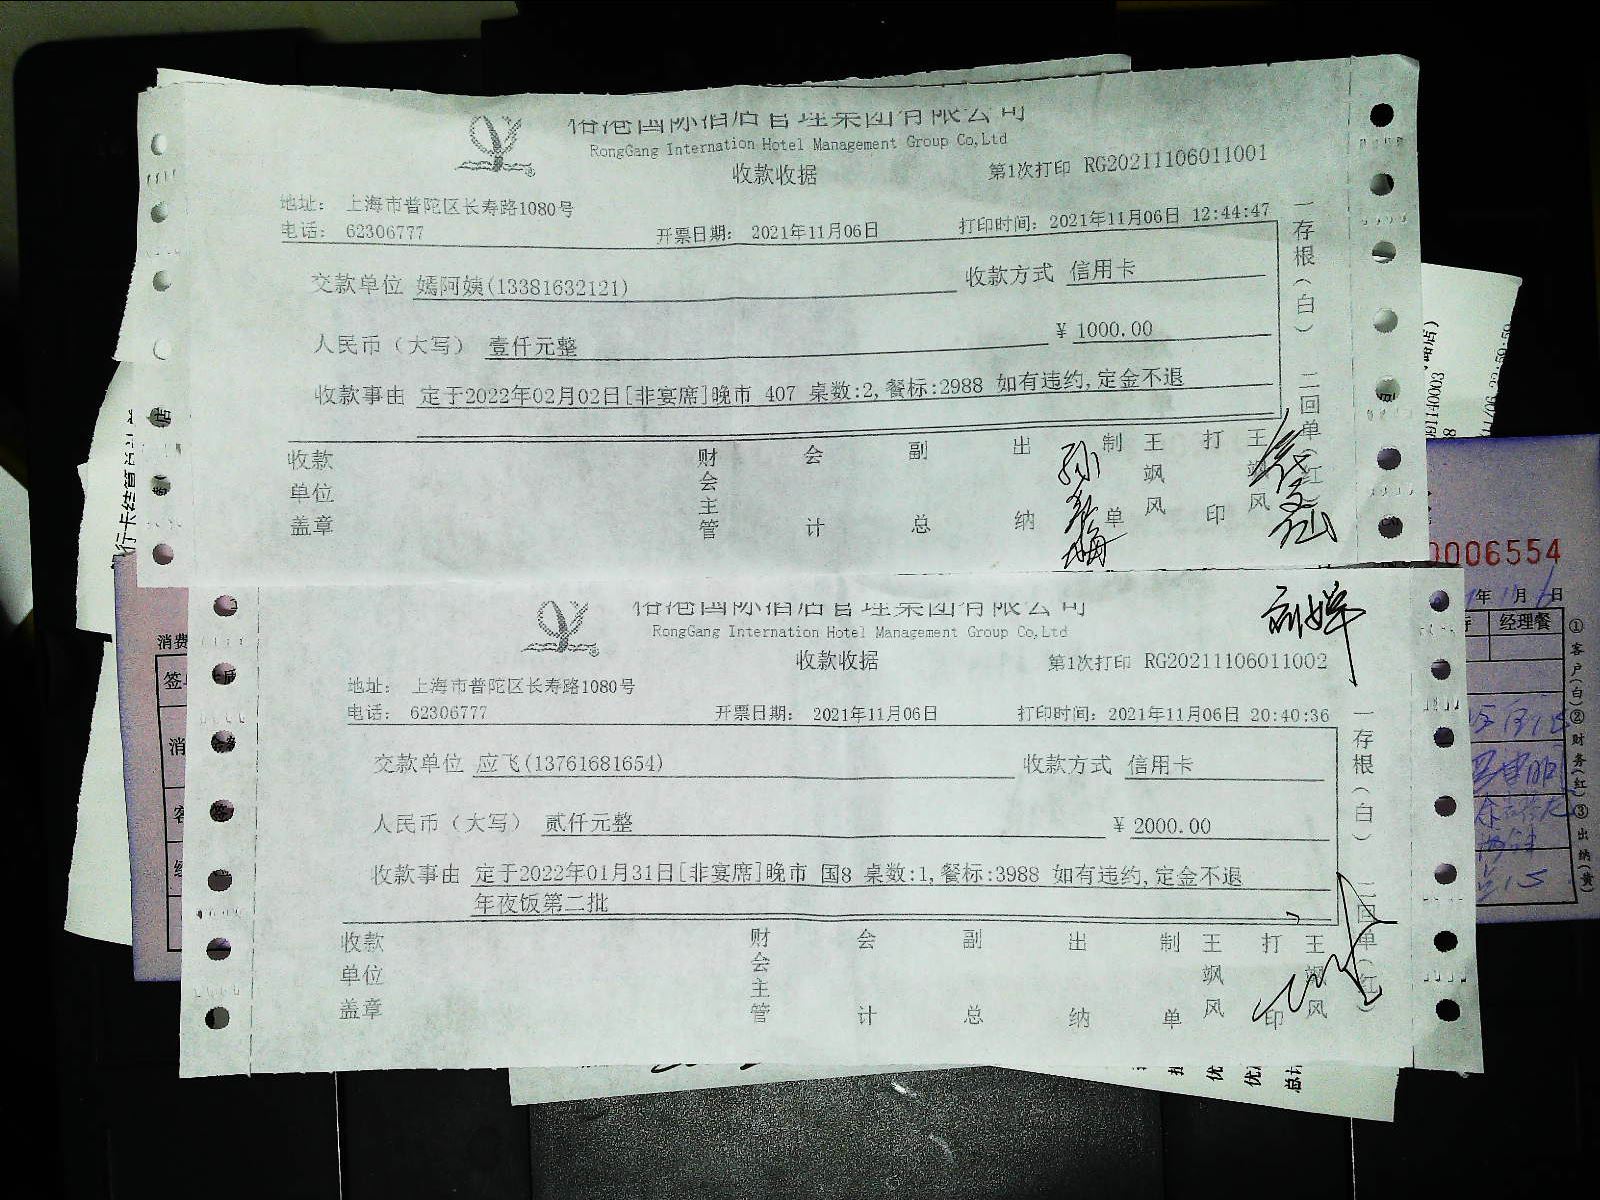 RongGang Internation Hotel Management Group Co,Ltd
收款收据
第1次打印 RG20211106011001
地址： 上海市普陀区长寿路1080号
电话： 62306777
开票日期： 2021年11月06日
打印时间：2021年11月06日 12:44:47
交款单位 嫣阿姨(13381632121)
收款方式 信用卡
人民币（大写） 壹仟元整
¥ 1000.00
收款事由 定于2022年02月02日[非宴席]晚市 407 桌数:2,餐标:2988 如有违约,定金不退
一存根（白） 二回单（红）
收款单位盖章
财会主管
会计
副总
出纳
制单
王飒风
打印
王飒风
RongGang Internation Hotel Management Group Co,Ltd
收款收据
第1次打印 RG20211106011002
地址： 上海市普陀区长寿路1080号
电话： 62306777
开票日期： 2021年11月06日
打印时间：2021年11月06日 20:40:36
交款单位 应飞(13761681654)
收款方式 信用卡
人民币（大写） 贰仟元整
¥ 2000.00
收款事由 定于2022年01月31日[非宴席]晚市 国8 桌数:1,餐标:3988 如有违约,定金不退
年夜饭第二批
一存根（白） 二回单（红）
收款单位盖章
财会主管
会计
副总
出纳
制单
王飒风
打印
王飒风
0006554
年 月 日
经理餐
①客户(白)②财务(红)③出纳(黄)
消费